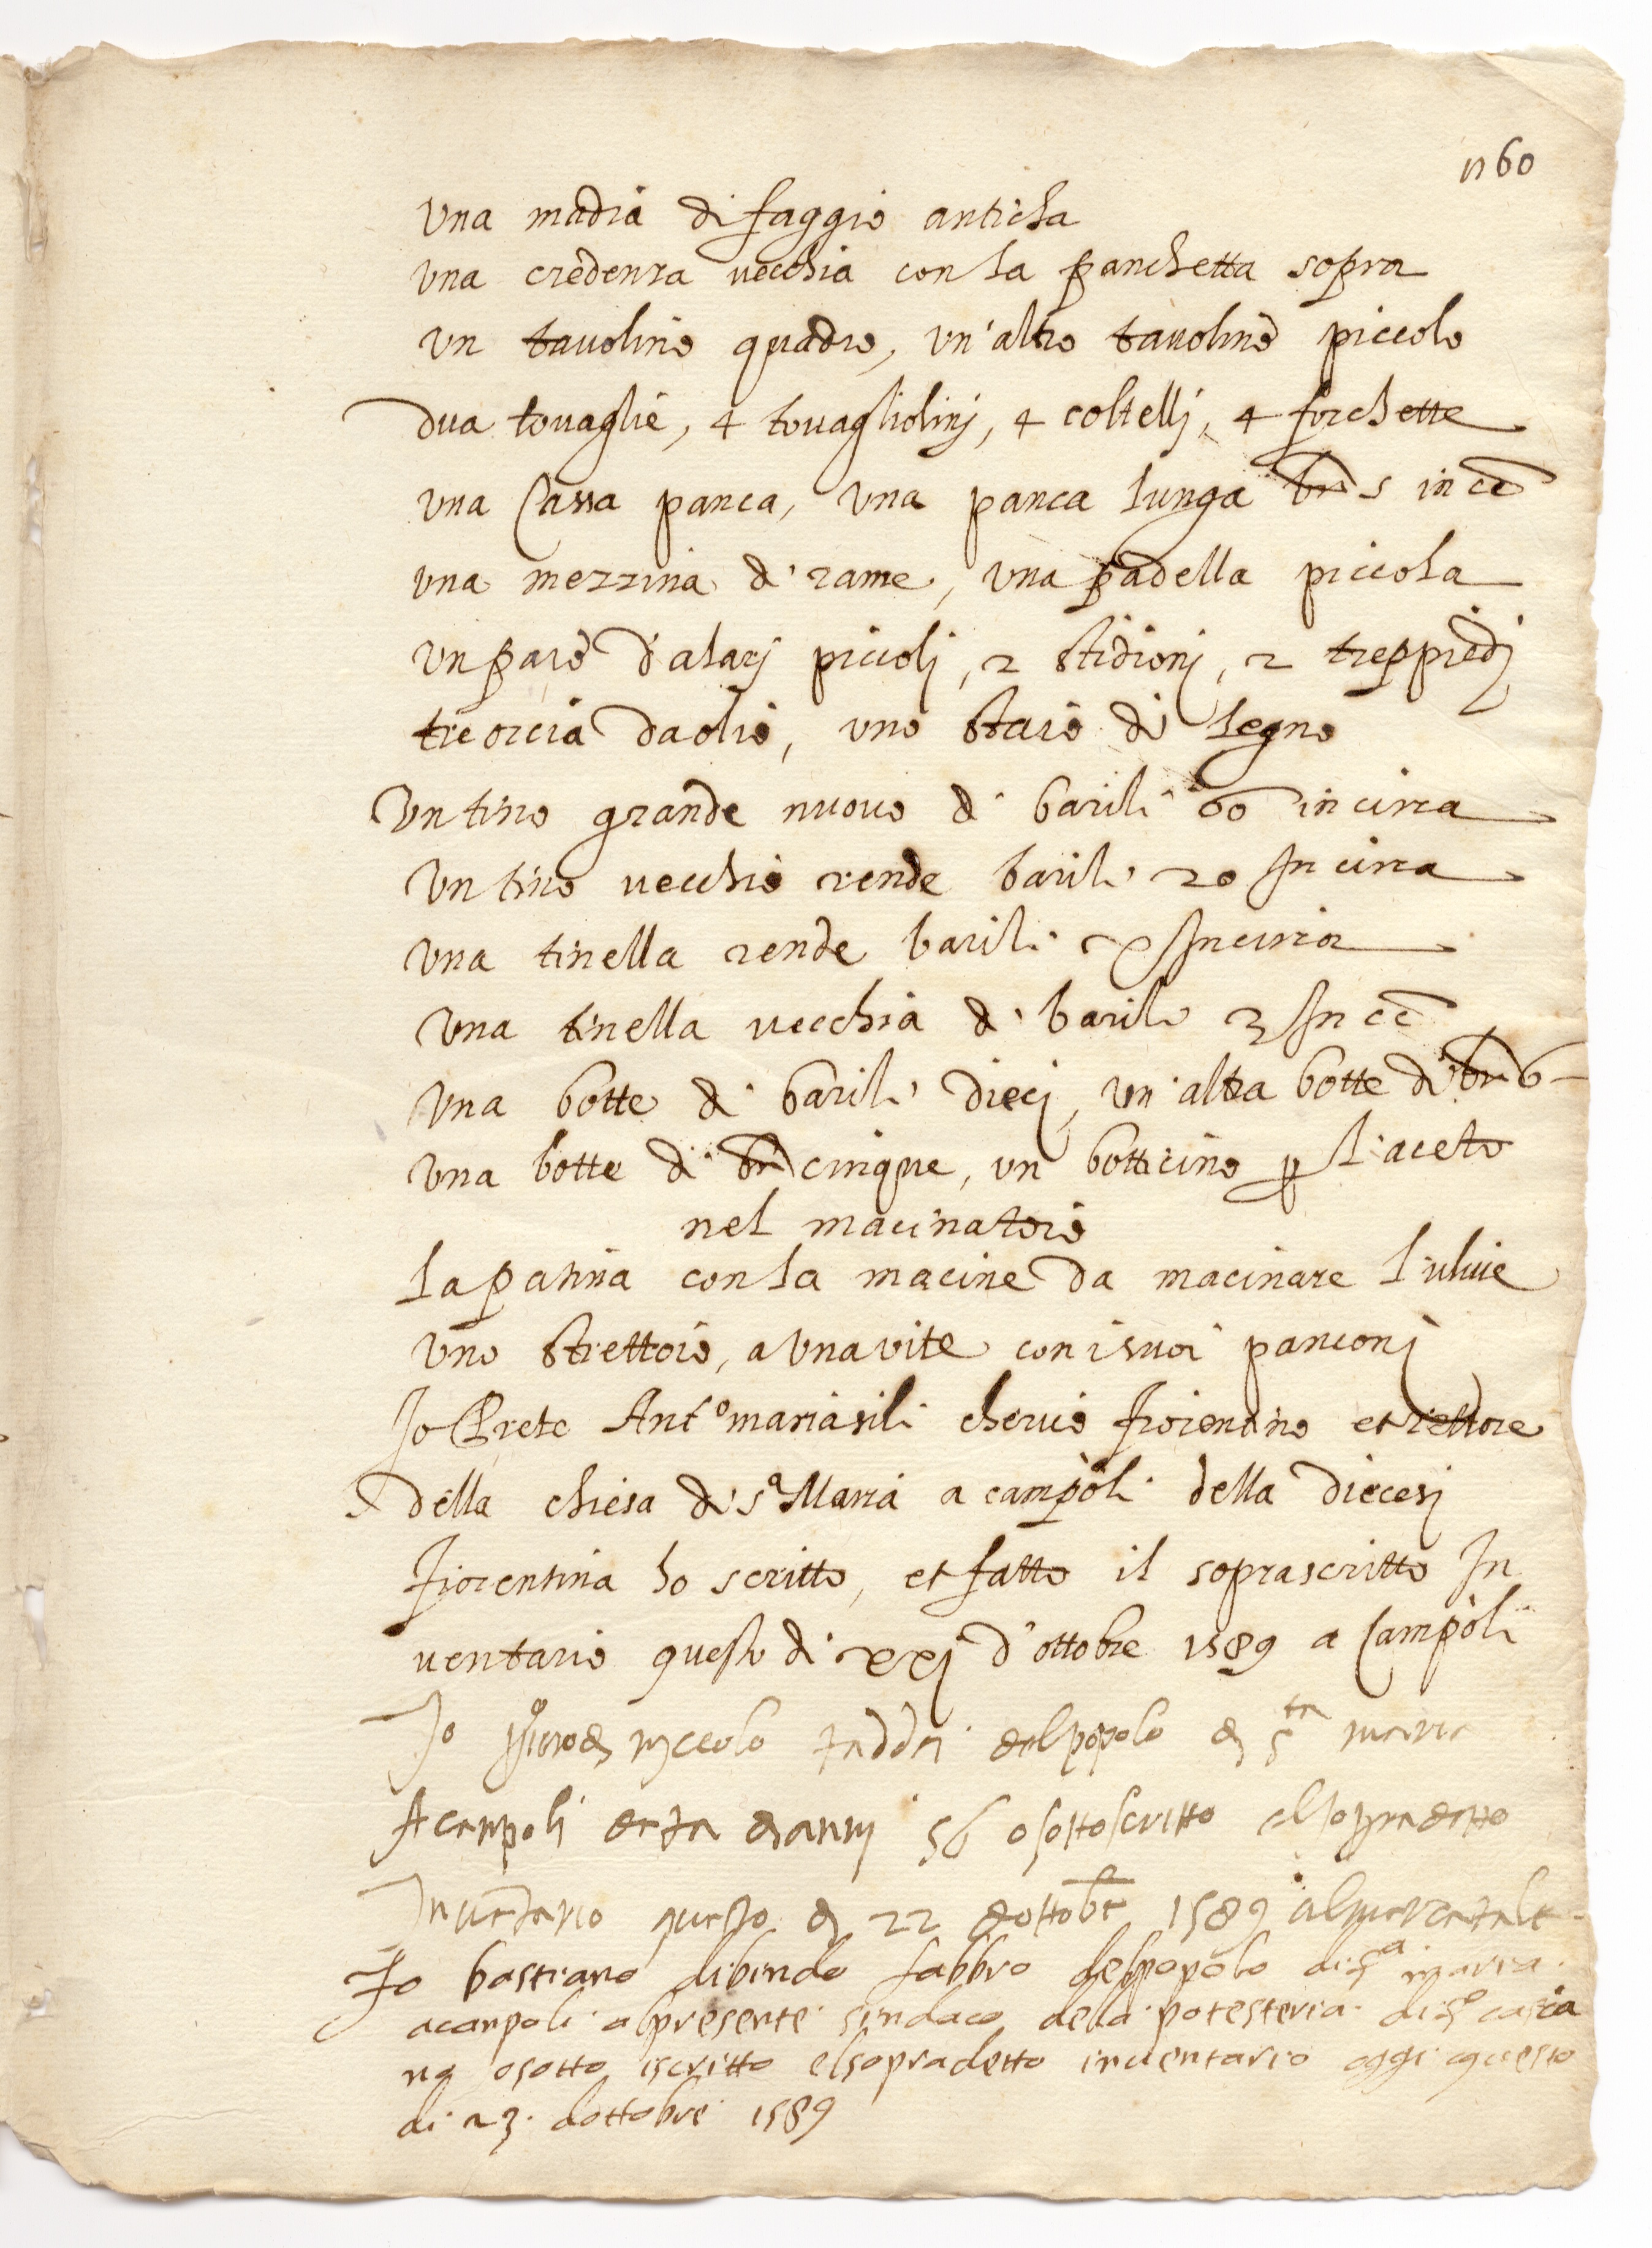 1160
Una madia di faggio anticha
una credenza vecchia con la panchetta sopra
un tauolino quadro, un'altro tauolino piccolo
Dua touaglie, 4 touagliolinj, 4 coltellj, 4 forchette
una Cassa panca, una panca lunga br 5 in cc
una mezzina di rame, una padella piccola
un paro d'alarj piccolj, 2 stidionj, 2 treppiedj
tre orcia da olio, uno staio di legno
Un tino grande nuouo di barili 60 in circa
Un tino uecchio rende barili 20 In circa
una tinella rende barili In circa
una tinella uecchia di barili 3 In cc
una botte di barili Diecj, un'altra botte di br 6
una botte di br cinque, un botticino p l'aceto
nel macinatoio
la patina con la macine da macinare l'uliue
uno strettoio, a una vite con i suoi panconj
Io Prete Ant.o maria chierico fiorentino et rettore
della chiesa di S.a Maria a campoli della Diecesj
fiorentina ho scritto, et fatto il soprascritto In
uentario questo di xxj d'ottobre 1589 a Campòli
Io di niccolo taddei del popolo di S.ta maria
A campoli deta di anni 56 o sottoscritto el sopra detto
Inuentario questo di 22 dottobre 1589
Io bastiano di bindo fabbro del popolo di S.a maria
a canpoli al presente sindaco della potesteria di S.o casia
no o sotto iscritto el sopradetto inuentario oggi questo
di 23 dottobre 1589